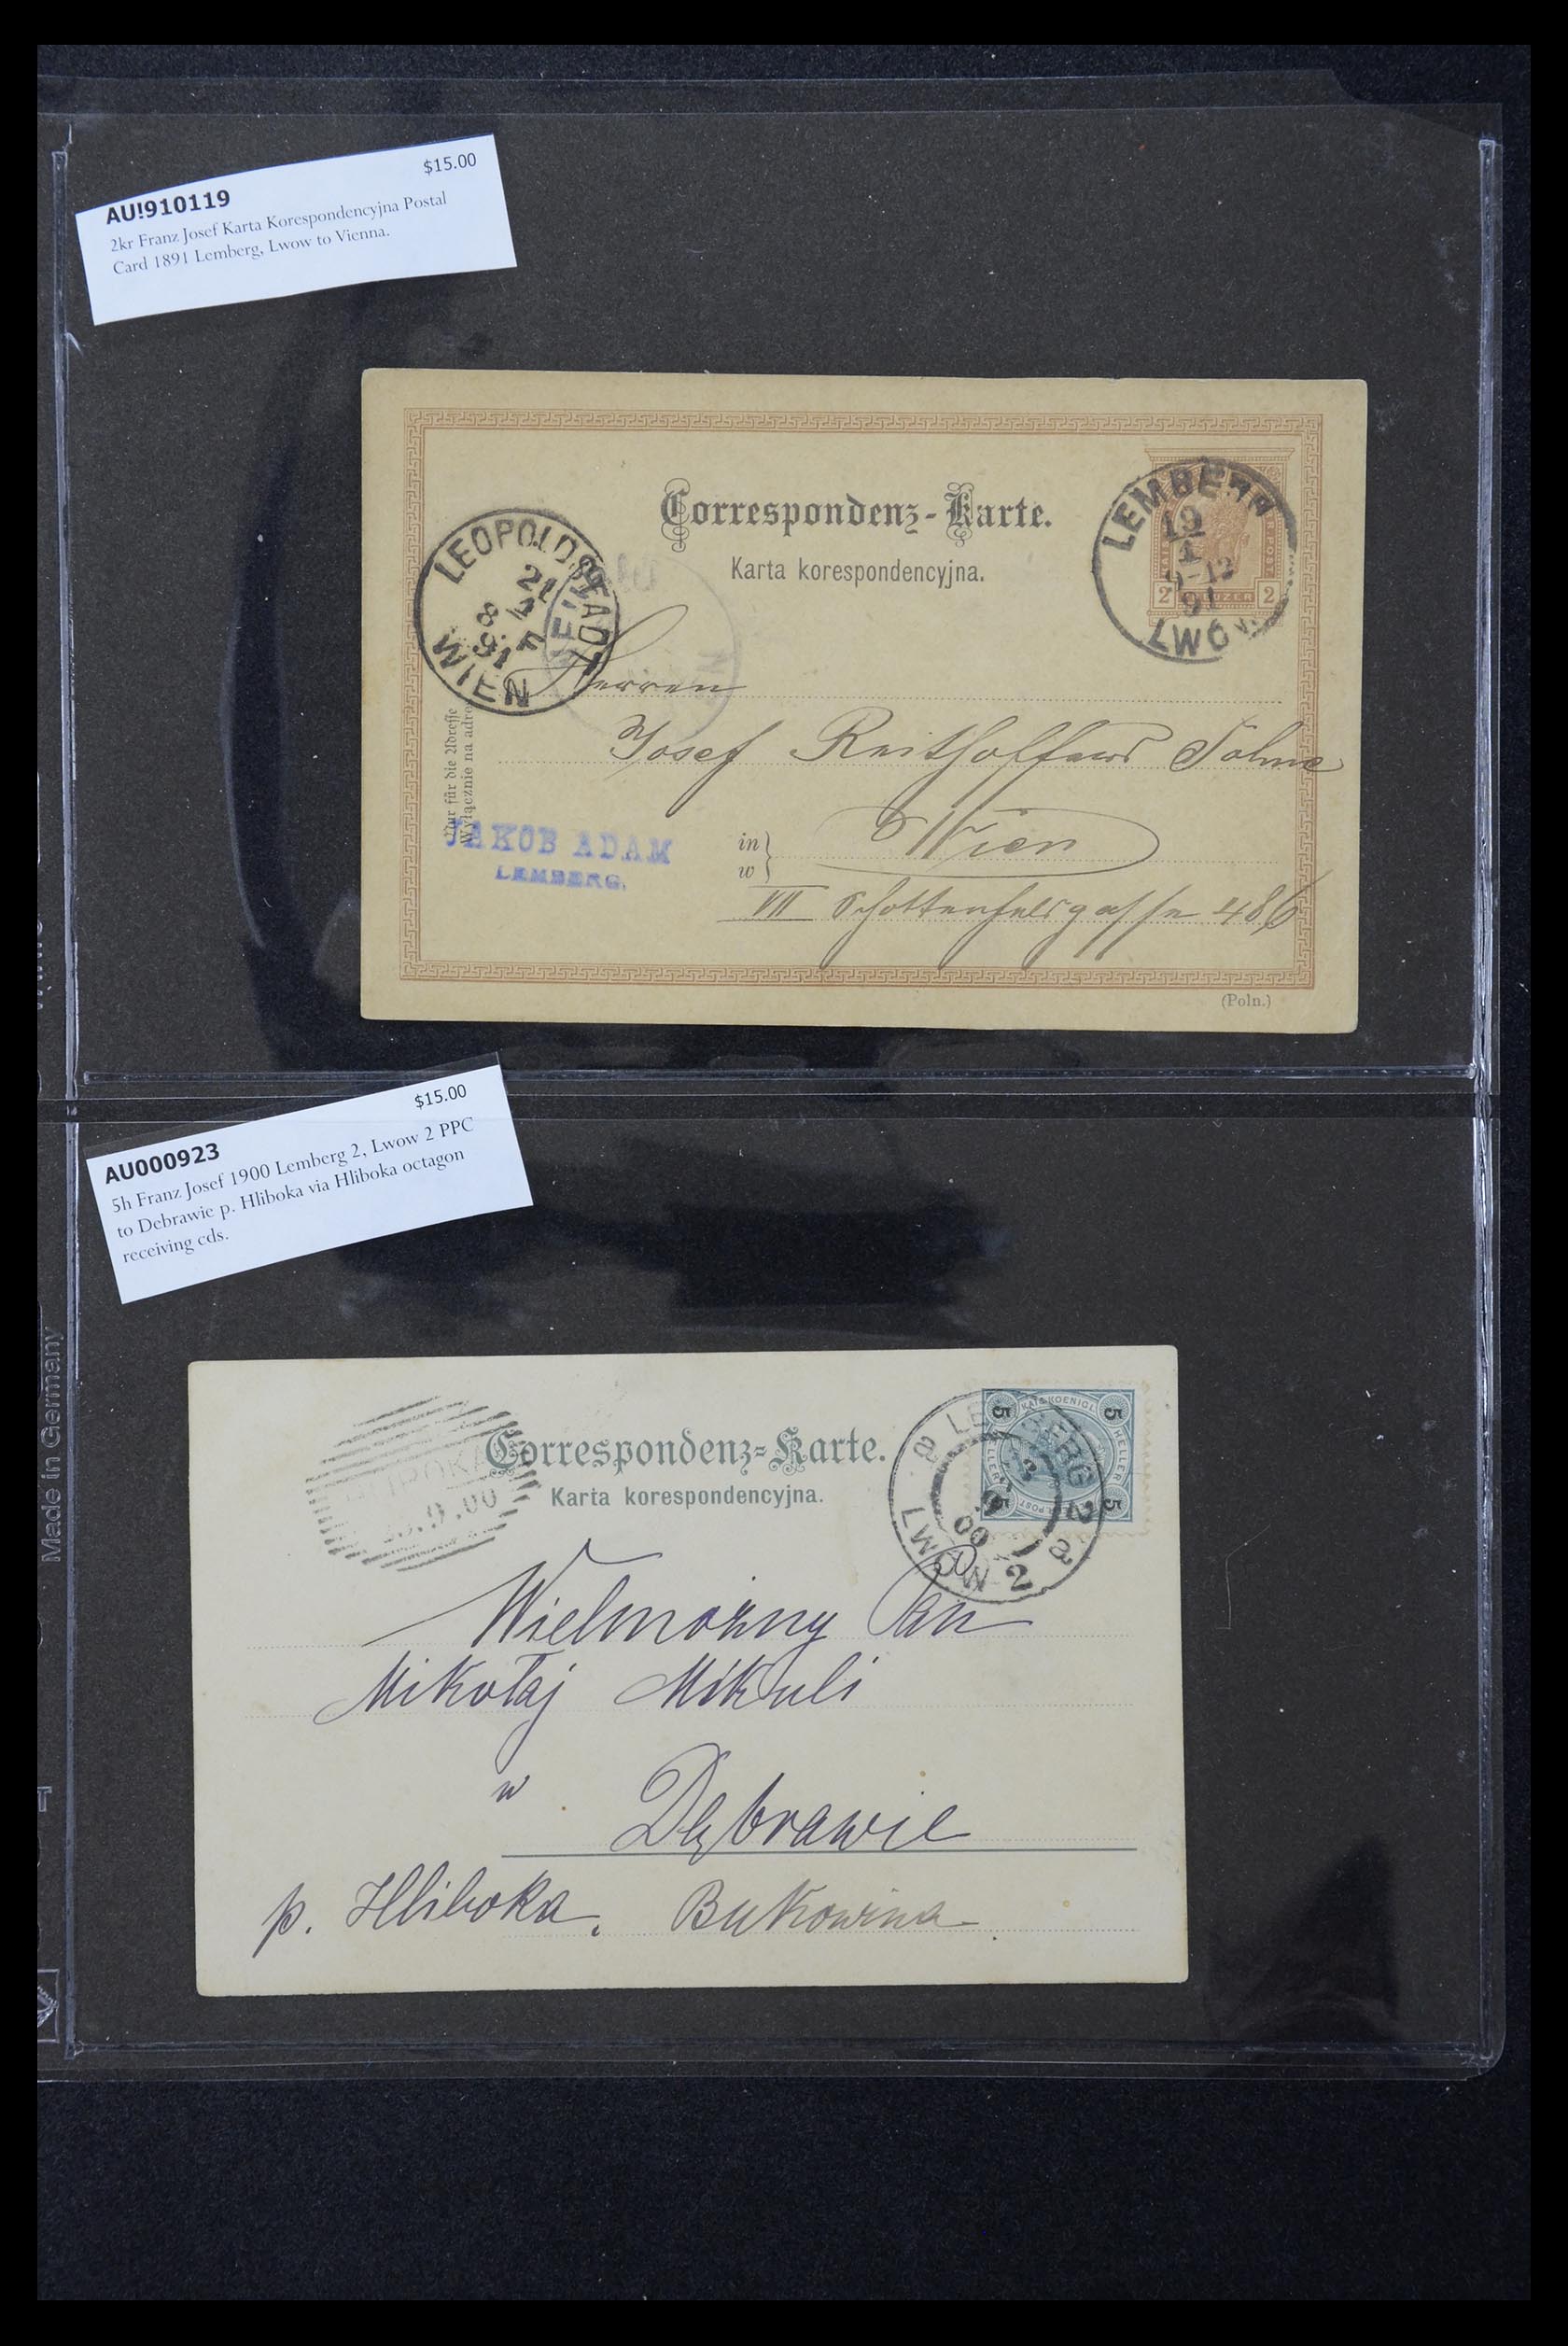 $15.00
AU!910119
2kr Franz Josef Karta Korespondencyjna Postal
Card 1891 Lemberg, Lwow to Vienna.
Correspondenz-Karte.
Karta korespondencyjna.
LEMBERG
19
1
9-12
91
LWÓW
2 KREUZER 2
LEOPOLDSTADT
21
1
8 F
91
WIEN
Herren
Josef Reithoffers Söhne
Nur für die Adresse
Wyłącznie na adre
JAKOB ADAM
LEMBERG.
in
w
Wien
VII Schottenfeldgasse
(Poln.)
$15.00
AU000923
5h Franz Josef 1900 Lemberg 2, Lwow 2 PPC
to Debrawie p. Hliboka via Hliboka octagon
receiving cds.
Correspondenz-Karte.
Karta korespondencyjna.
LEMBERG 2
9
00
LWÓW 2
5 KAIS. KOENIGL. 5
HELLER HELLER
5 POST 5
.9.00
Wielmożny Pan
Mikołaj Mikuli
w Dąbrawie
p. Hliboka. Bukowina
Made in Germany